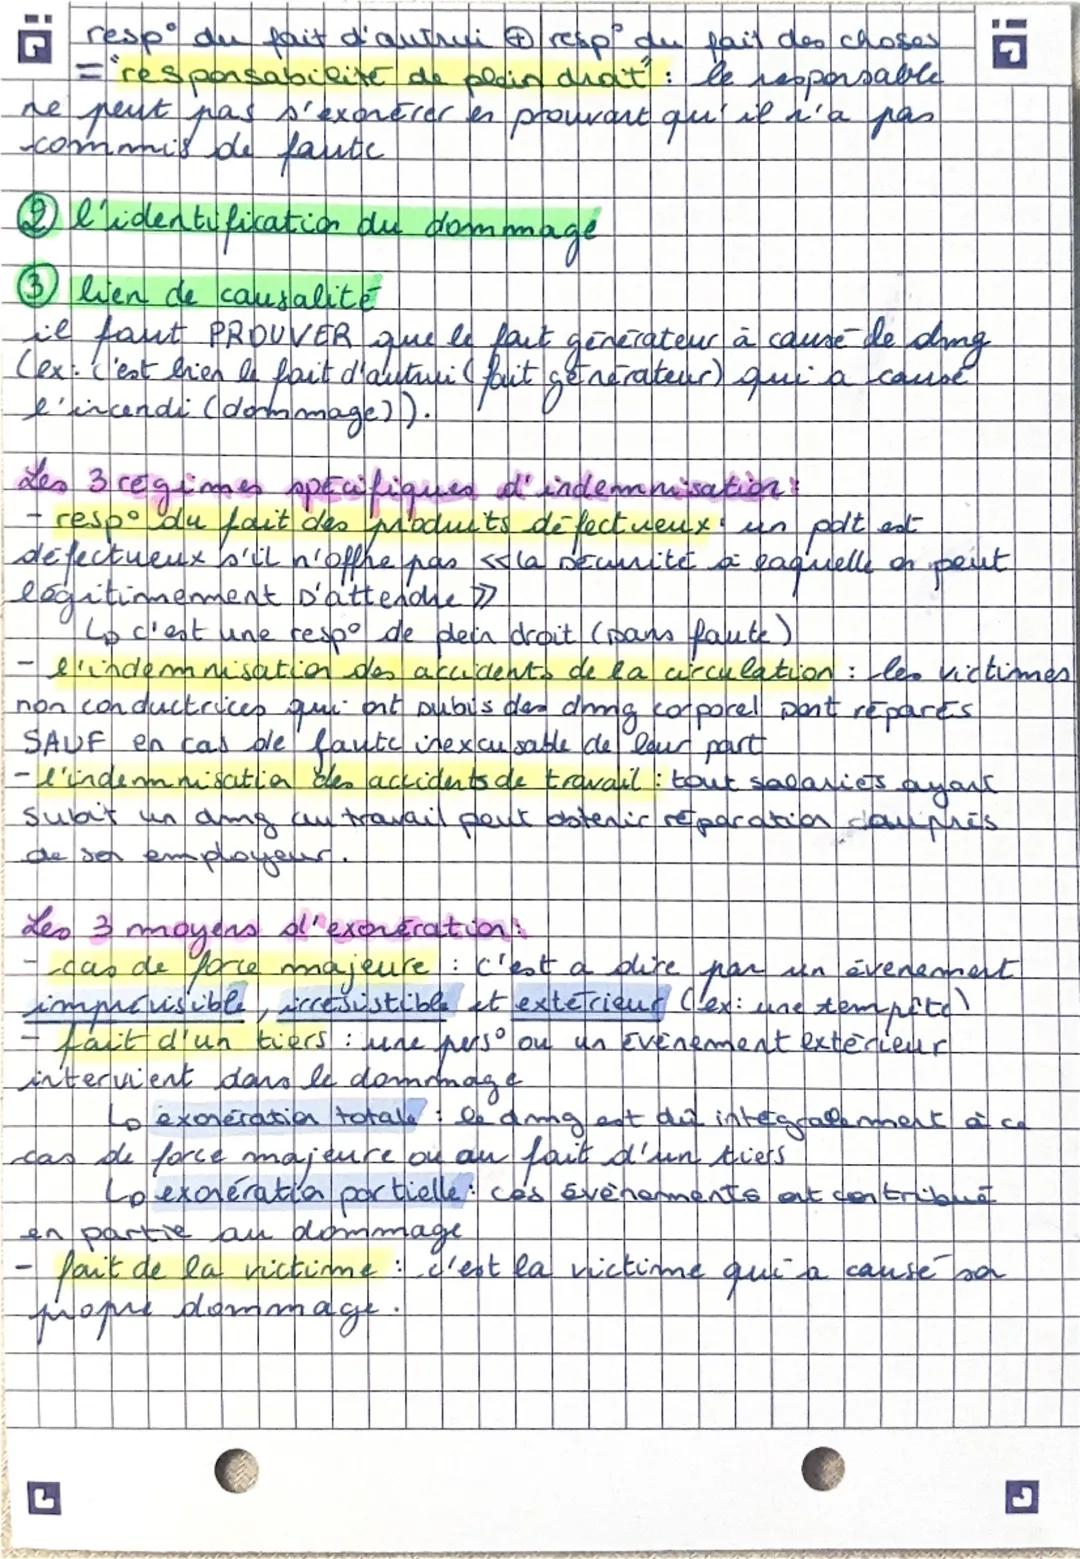 resp° du fait d'autrui ⊕ resp° du fait des choses
= "responsabilité de plein droit" : le responsable
ne peut pas s'exonérer en prouvant qu'il n'a pas
commis de faute
② l'identification du dommage
③ lien de causalité
il faut PROUVER que le fait générateur à causé le dmg
(ex: c'est bien le fait d'autrui (fait générateur) qui a causé
l'incendi (dommage)).
Les 3 régimes spécifiques d'indemnisation :
- resp° du fait des produits défectueux : un pdt est
défectueux s'il n'offre pas << la sécurité à laquelle on peut
légitimement s'attendre >>
↳ c'est une resp° de plein droit (sans faute)
- l'indemnisation des accidents de la circulation : les victimes
non conductrices qui ont subis des dmg corporel sont réparés
SAUF en cas de faute inexcusable de leur part
- l'indemnisation des accidents de travail : tout salariés ayant
subit un dmg au travail peut obtenir réparation auprès
de son employeur.
Les 3 moyens d'exonération :
- cas de force majeure : c'est a dire par un évenement
imprévisible, irrésistible et extérieur (ex: une tempête)
- fait d'un tiers : une pers° ou un évènement extérieur
intervient dans le dommage
↳ exonération totale : le dmg est dû intégralement à ce
cas de force majeure ou au fait d'un tiers
↳ exonération partielle : ces évènements ont contribué
en partie au dommage
- fait de la victime : c'est la victime qui a causé son
propre dommage.